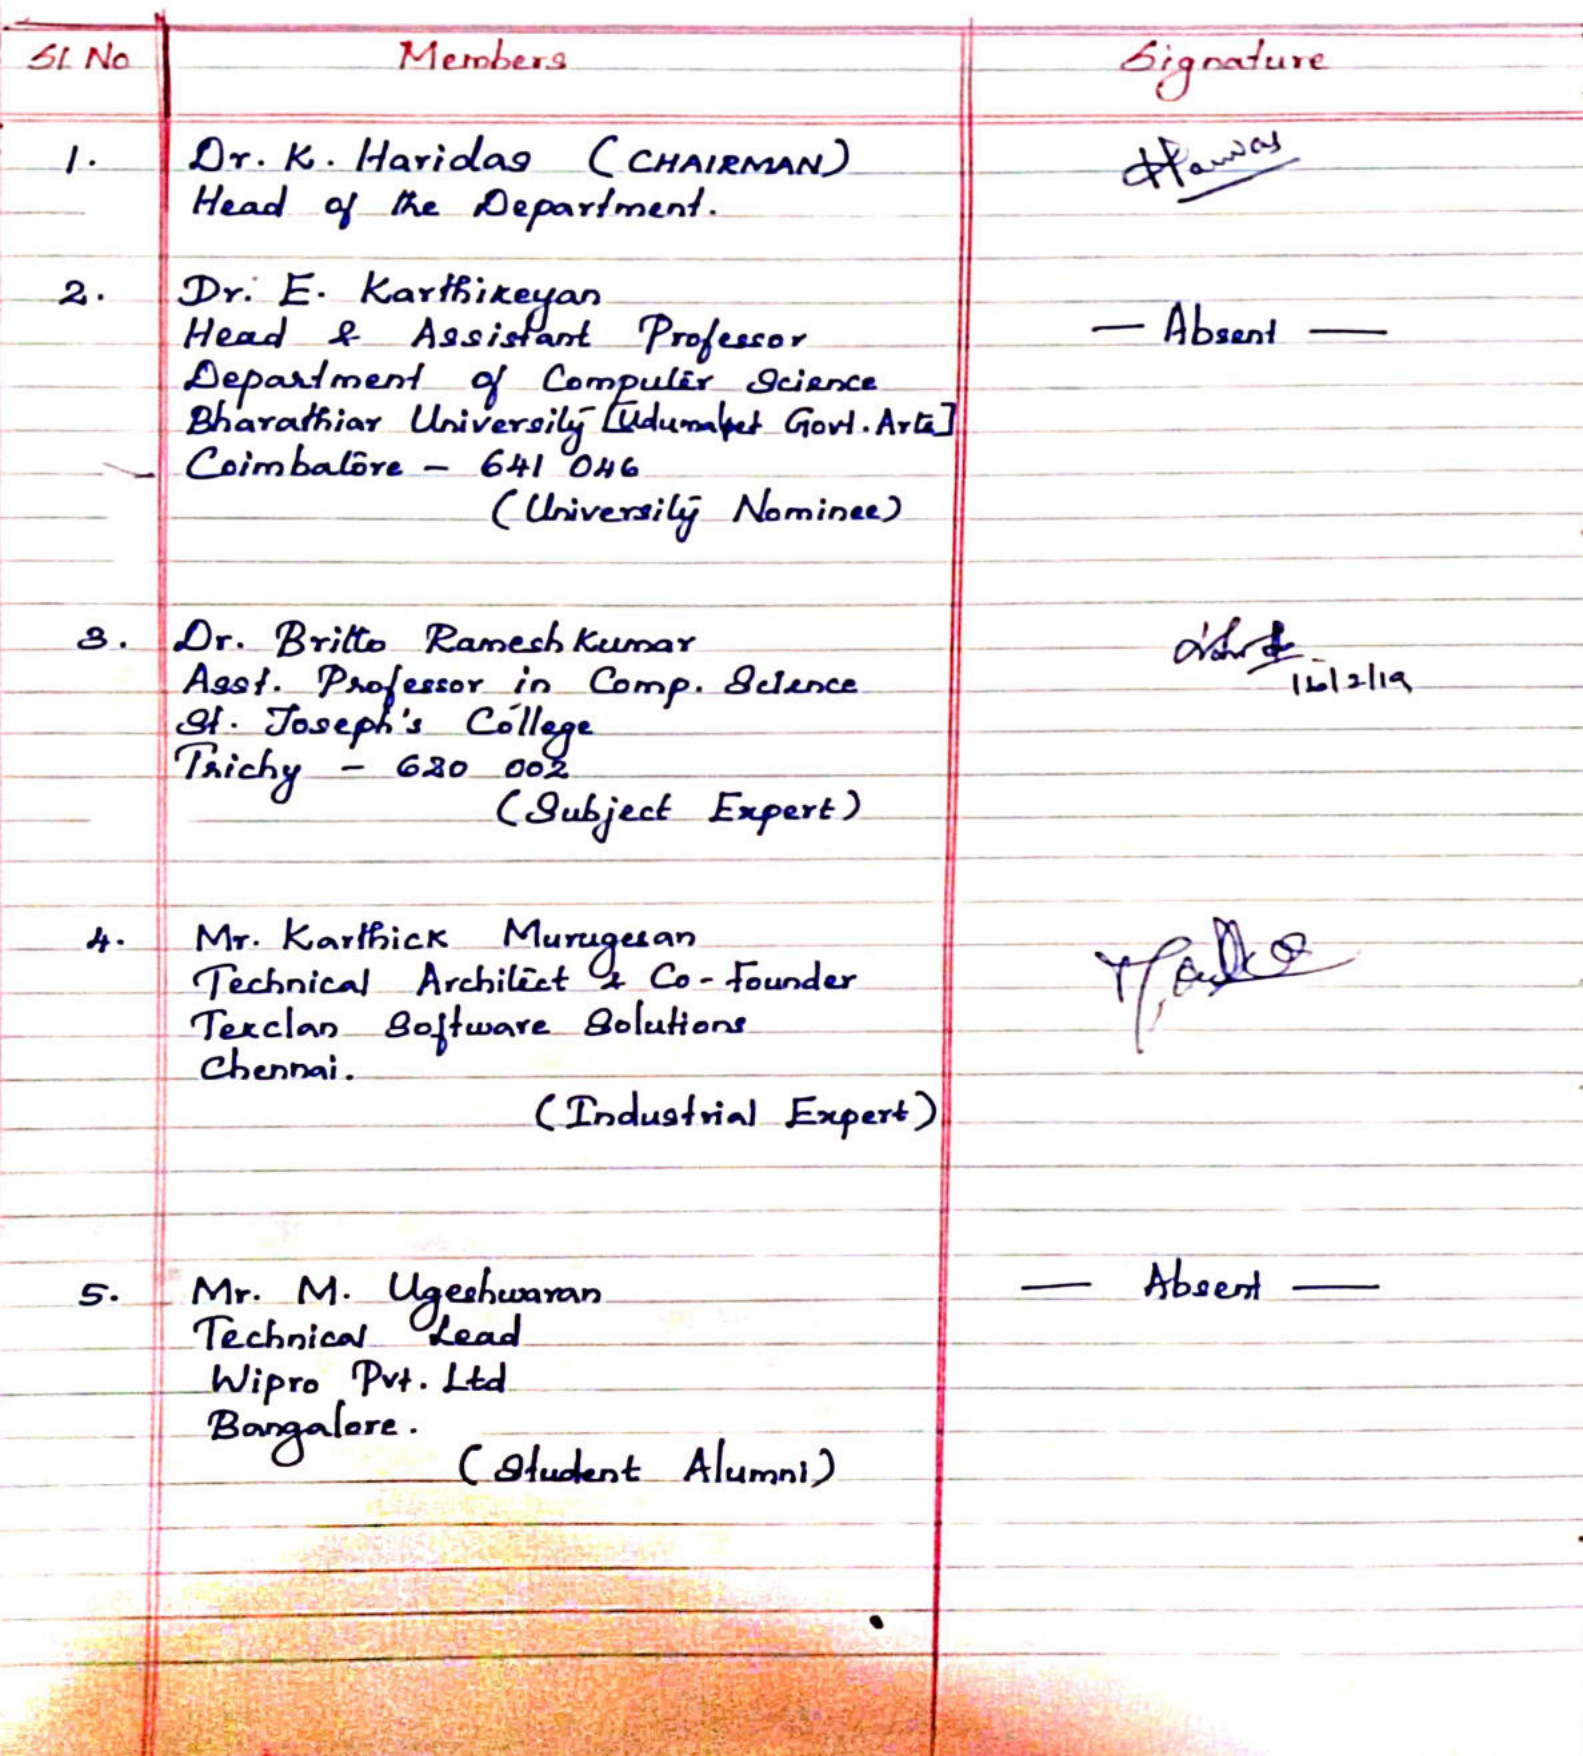 Sl. No Members Signature
1. Dr. K. Haridas (CHAIRMAN)
Head of the Department.
2. Dr. E. Karthikeyan
Head & Assistant Professor
— Absent —
Department of Computer Science
Bharathiar University [Udumalpet Govt. Arts]
Coimbatore - 641 046
(University Nominee)
3. Dr. Britto Ramesh Kumar
Asst. Professor in Comp. Science
16/2/19
St. Joseph's College
Trichy - 620 002
(Subject Expert)
4. Mr. Karthick Murugesan
Technical Architect & Co-founder
Texclan Software Solutions
Chennai.
(Industrial Expert)
5. Mr. M. Ugeshwaran — Absent —
Technical Lead
Wipro Pvt. Ltd
Bangalore.
(Student Alumni)